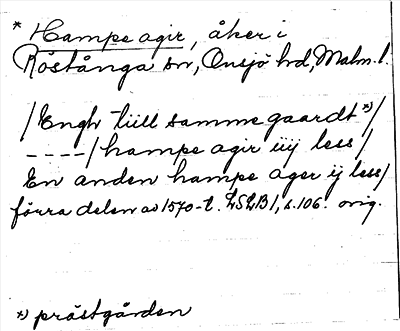 * Hampe agir, åker i
Röstånga sn, Onsjö hd, Malm. l.
/Engh tiill samme gaardt *)/
----/hampe agir iiij less/
En anden hampe ager ij less/
förra delen av 1570-t. LSLB1, s. 106. orig.
*) prästgården